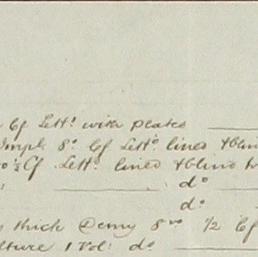 Cf Lett.d with plates
Impl. 8o Cf Lett.o lined &
½ Cf Lett.o lined &
do
do
thick Demy 8vo ½ Cf
lture 1 Vol: do